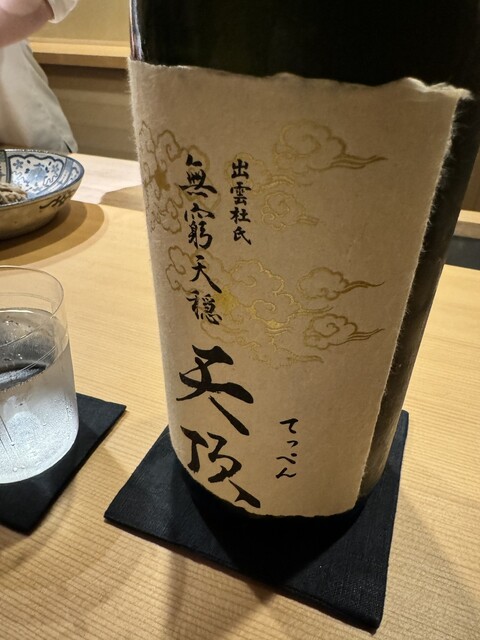 出雲杜氏
無窮天穏
天頂
てっぺん